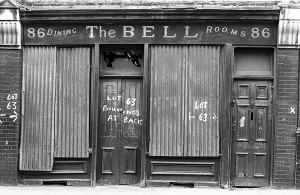 86 DINING The BELL ROOMS 86
LOT
63
LOT
63
BUILDINGS
AT BACK
LOT
63